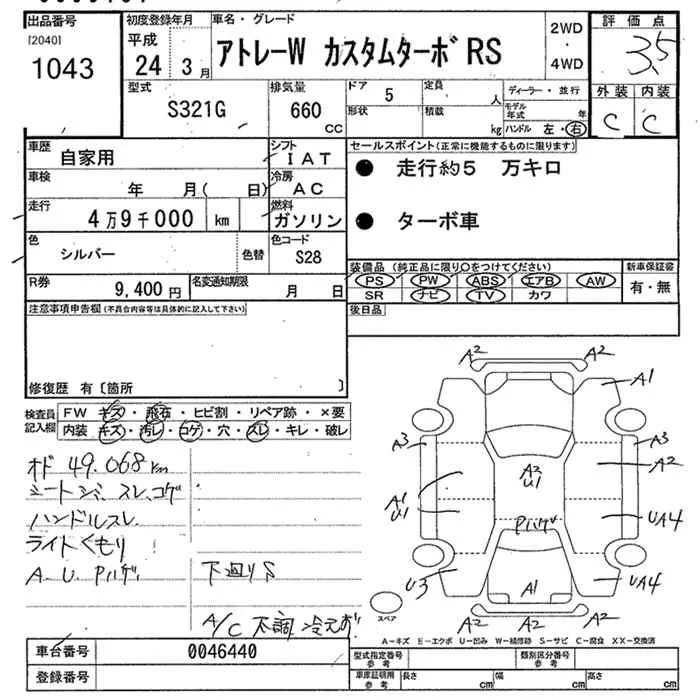 出品番号
[2040]
1043
初度登録年月
平成
24 3月
車名・グレード
アトレーW カスタムターボRS
2WD
・
4WD
評価点
3.5
外装 内装
C C
型式
S321G
排気量
660
CC
ドア
5
形状
定員
人
積載
kg
ディーラー・並行
モデル年式 年
ハンドル 左・右
車歴
自家用
シフト
IAT
車検
年 月( 日)
冷房
AC
走行
4万9千000 km
燃料
ガソリン
色
シルバー
色替
色コード
S28
R券
9,400円
名変通知期限
月 日
セールスポイント(正常に機能するものに限ります)
● 走行約5 万キロ
● ターボ車
装備品(純正品に限り○をつけてください)
PS PW ABS エアB AW
SR ナビ TV カワ
新車保証書
有・無
後日品
注意事項申告欄(不具合内容等は具体的に記入して下さい)
修復歴 有〔箇所 〕
検査員記入欄
FW キズ・飛石・ヒビ割・リペア跡・×要
内装 キズ・汚レ・コゲ・穴・スレ・キレ・破レ
オド 49.068km
シートシミ、スレ、コゲ
ハンドルスレ
ライトくもり
A.U.Pハゲ 下廻りS
A/C 不調 冷えず
A2 A2
A1
A3 A3
A2
A2
U1
A1
U1
Pハゲ
UA4
U3
A1
UA4
A2 A2
スペア
A−キズ E−エクボ U−凹み W−補修跡 S−サビ C−腐食 XX−交換済
車台番号
0046440
登録番号
型式指定番号
参考
類別区分番号
参考
車庫証明用
参考
長さ cm
幅 cm
高さ cm